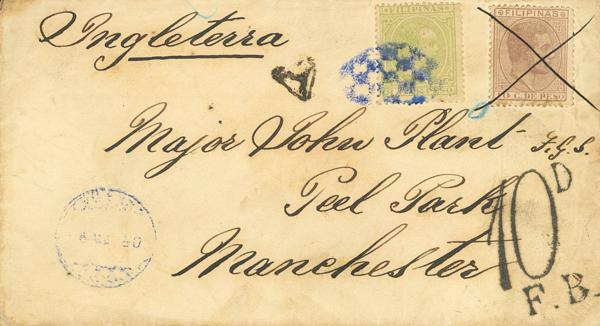 Ingleterra
FILIPINAS
FILIPINAS
C. DE PESO
Major John Plant F.G.S.
Peel Park
Manchester
10D
F.B.